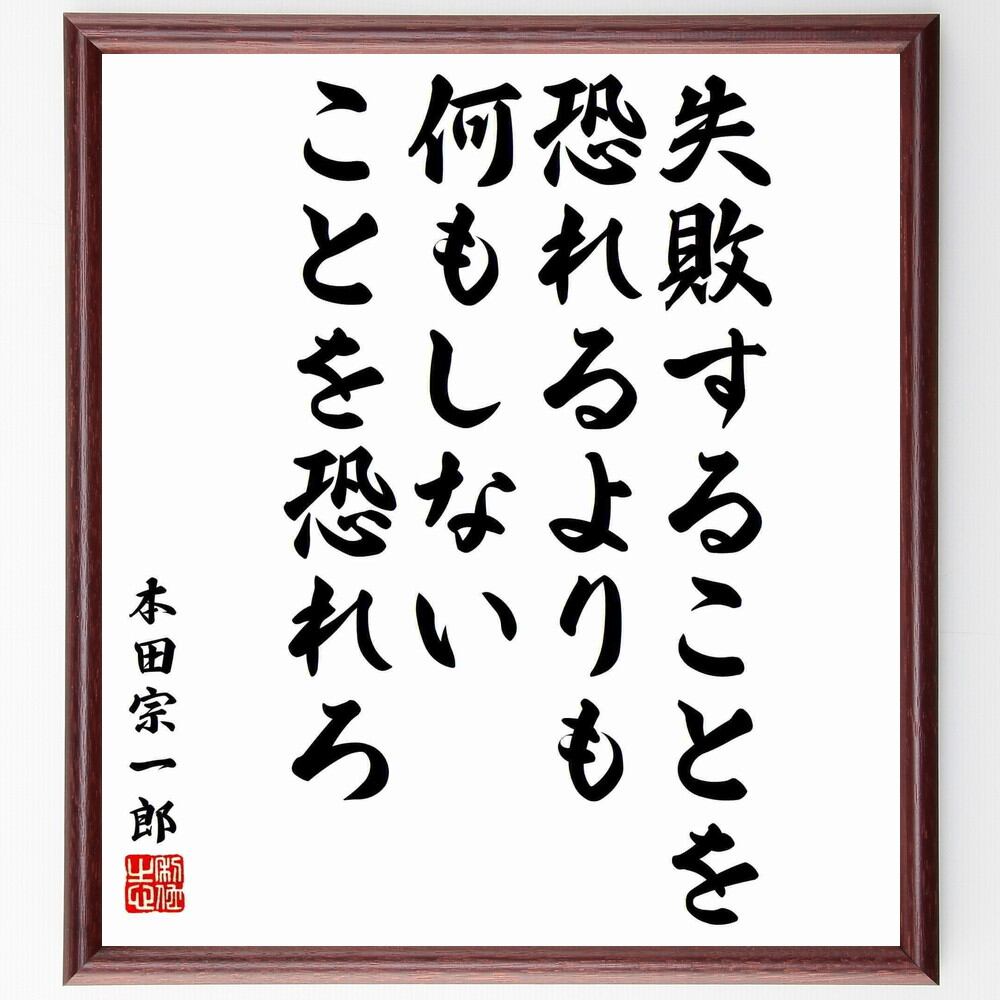 失敗することを
恐れるよりも
何もしない
ことを恐れろ
本田宗一郎